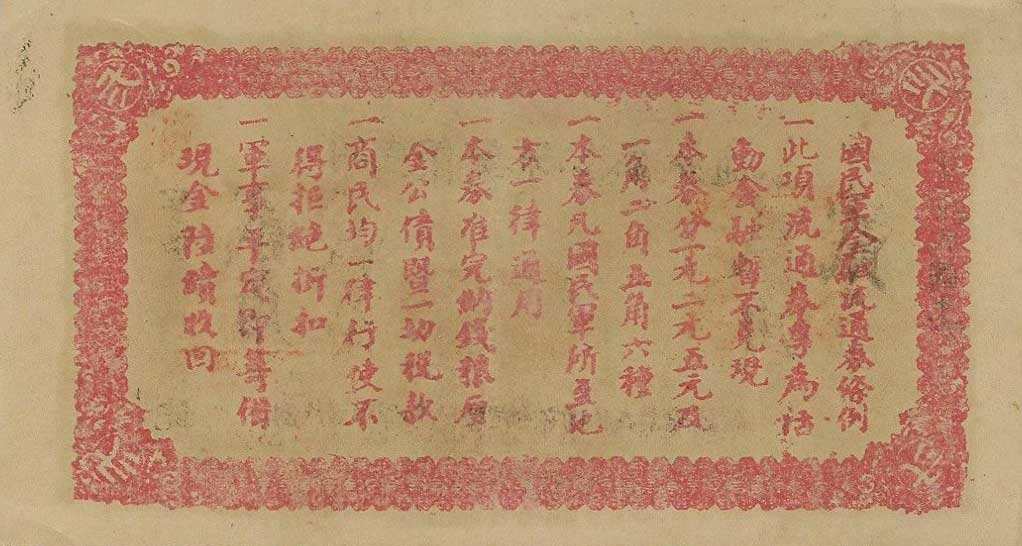 國民軍金融流通券條例
一此項流通券專為活
動金融暫不兌現
一本券分一元二元五元及
一角二角五角六種
一本券凡國民軍所至地
方一律通用
一本券准完納錢糧厘
金公債暨一切稅款
一商民均一律行使不
得拒絕折扣
一軍事平定即籌備
現金陸續收回